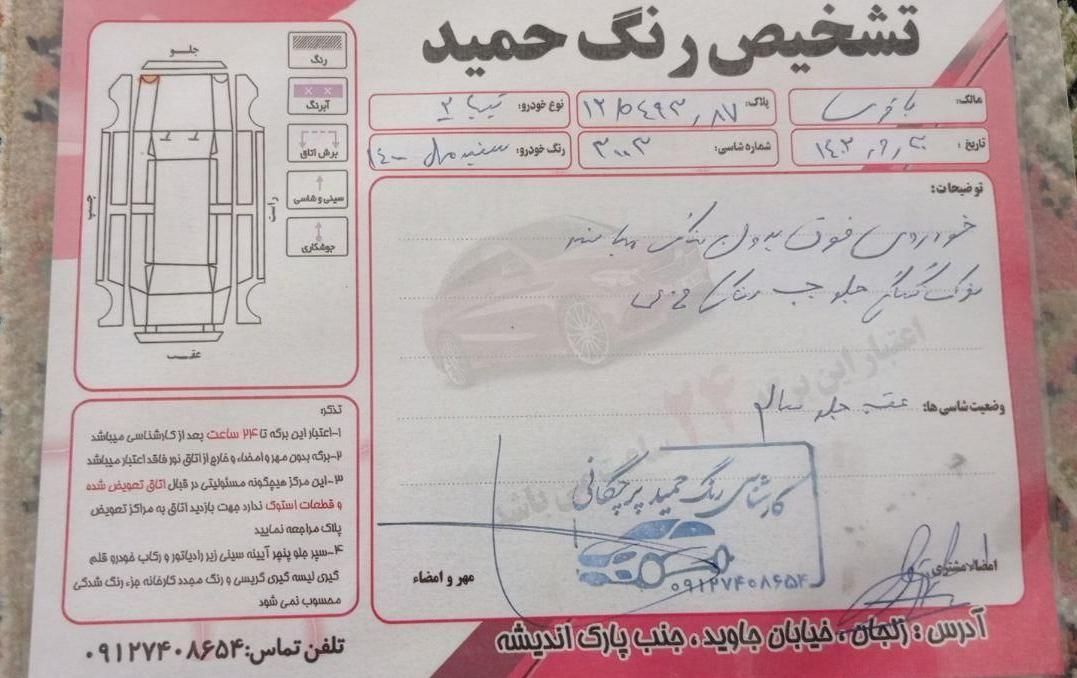 تشخیص رنگ حمید
مالک:
پلاک:
نوع خودرو: تیبا ۲
تاریخ:
شماره شاسی: ۳۰۰۳
رنگ خودرو: سفید مدل ۱۴۰۰
توضیحات:
خودروی فوق بدون رنگ میباشد
نوک گلگیر جلو چپ رنگ
وضعیت شاسی ها: عقب جلو سالم
کارشناسی رنگ حمید پرچگانی
۰۹۱۲۷۴۰۸۶۵۴
مهر و امضاء
امضاء مشتری
جلو
عقب
چپ
راست
رنگ
آبرنگ
برش اتاق
سینی و شاسی
جوشکاری
تذکر:
۱-اعتبار این برگه تا ۲۴ ساعت بعد از کارشناسی میباشد
۲-برگه بدون مهر و امضاء و خارج از اتاق نور فاقد اعتبار میباشد
۳-این مرکز هیچگونه مسئولیتی در قبال اتاق تعویض شده
و قطعات استوک ندارد جهت بازدید اتاق به مراکز تعویض
پلاک مراجعه نمایید
۴-سپر جلو پنجر آیینه سینی زیر رادیاتور و رکاب خودرو قلم
گیری لیسه گیری گریسی و رنگ مجدد کارخانه جزء رنگ شدگی
محسوب نمی شود
تلفن تماس: ۰۹۱۲۷۴۰۸۶۵۴
آدرس : زنجان ، خیابان جاوید ، جنب پارک اندیشه